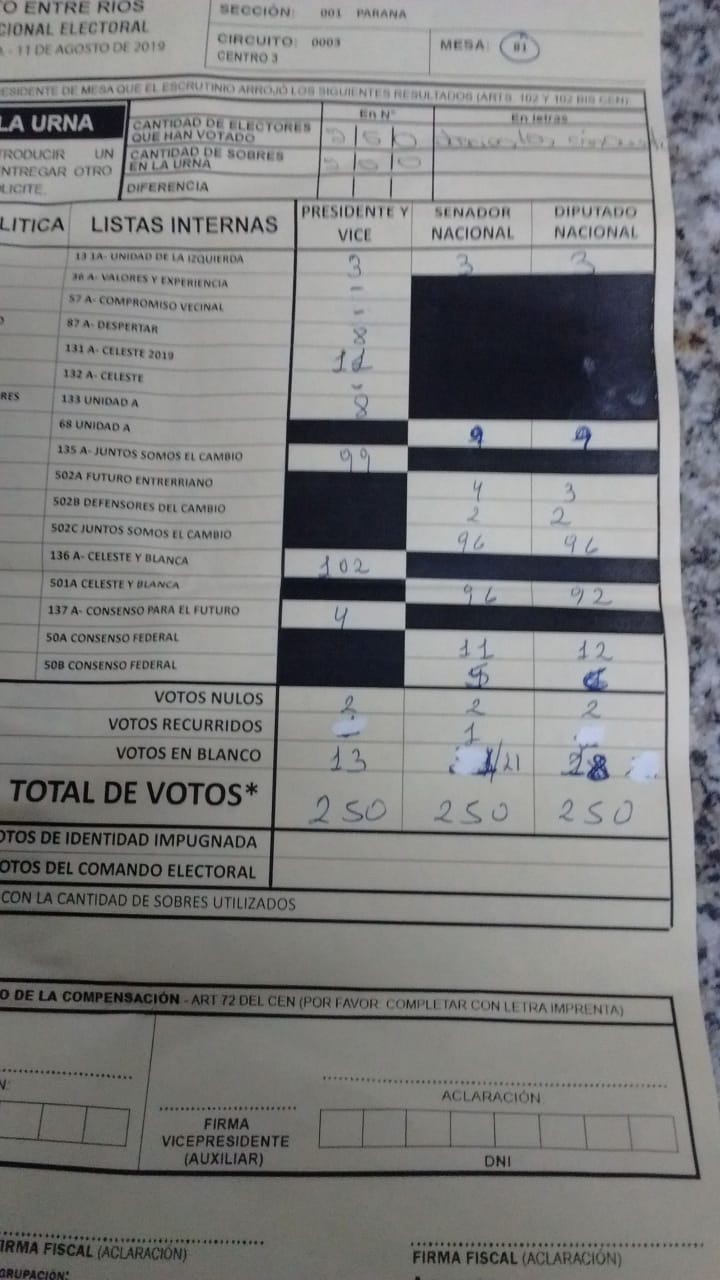 O ENTRE RIOS
CIONAL ELECTORAL
- 11 DE AGOSTO DE 2019
SECCIÓN: 001 PARANA
CIRCUITO: 0003
CENTRO 3
MESA: 81
ESIDENTE DE MESA QUE EL ESCRUTINIO ARROJÓ LOS SIGUIENTES RESULTADOS (ARTS. 102 Y 102 BIS CEN)
LA URNA
TRODUCIR UN
ENTREGAR OTRO
LICITE.
En N° En letras
CANTIDAD DE ELECTORES QUE HAN VOTADO 2 5 0
CANTIDAD DE SOBRES EN LA URNA
DIFERENCIA
LITICA LISTAS INTERNAS PRESIDENTE Y VICE SENADOR NACIONAL DIPUTADO NACIONAL
13 1A- UNIDAD DE LA IZQUIERDA 3 3 3
36 A- VALORES Y EXPERIENCIA -
57 A- COMPROMISO VECINAL -
87 A- DESPERTAR 8
131 A- CELESTE 2019 11
132 A- CELESTE -
RES 133 UNIDAD A 8
68 UNIDAD A 9 9
135 A- JUNTOS SOMOS EL CAMBIO 99
502A FUTURO ENTRERRIANO 4 3
502B DEFENSORES DEL CAMBIO 2 2
502C JUNTOS SOMOS EL CAMBIO 96 96
136 A- CELESTE Y BLANCA 102
501A CELESTE Y BLANCA 96 92
137 A- CONSENSO PARA EL FUTURO 4
50A CONSENSO FEDERAL 11 12
50B CONSENSO FEDERAL
VOTOS NULOS 2 2 2
VOTOS RECURRIDOS 1
VOTOS EN BLANCO 13 /21
TOTAL DE VOTOS* 250 250 250
OTOS DE IDENTIDAD IMPUGNADA
OTOS DEL COMANDO ELECTORAL
CON LA CANTIDAD DE SOBRES UTILIZADOS
O DE LA COMPENSACIÓN - ART 72 DEL CEN (POR FAVOR: COMPLETAR CON LETRA IMPRENTA)
N:
FIRMA
VICEPRESIDENTE
(AUXILIAR)
ACLARACIÓN
DNI
IRMA FISCAL (ACLARACIÓN)
GRUPACIÓN:
FIRMA FISCAL (ACLARACIÓN)